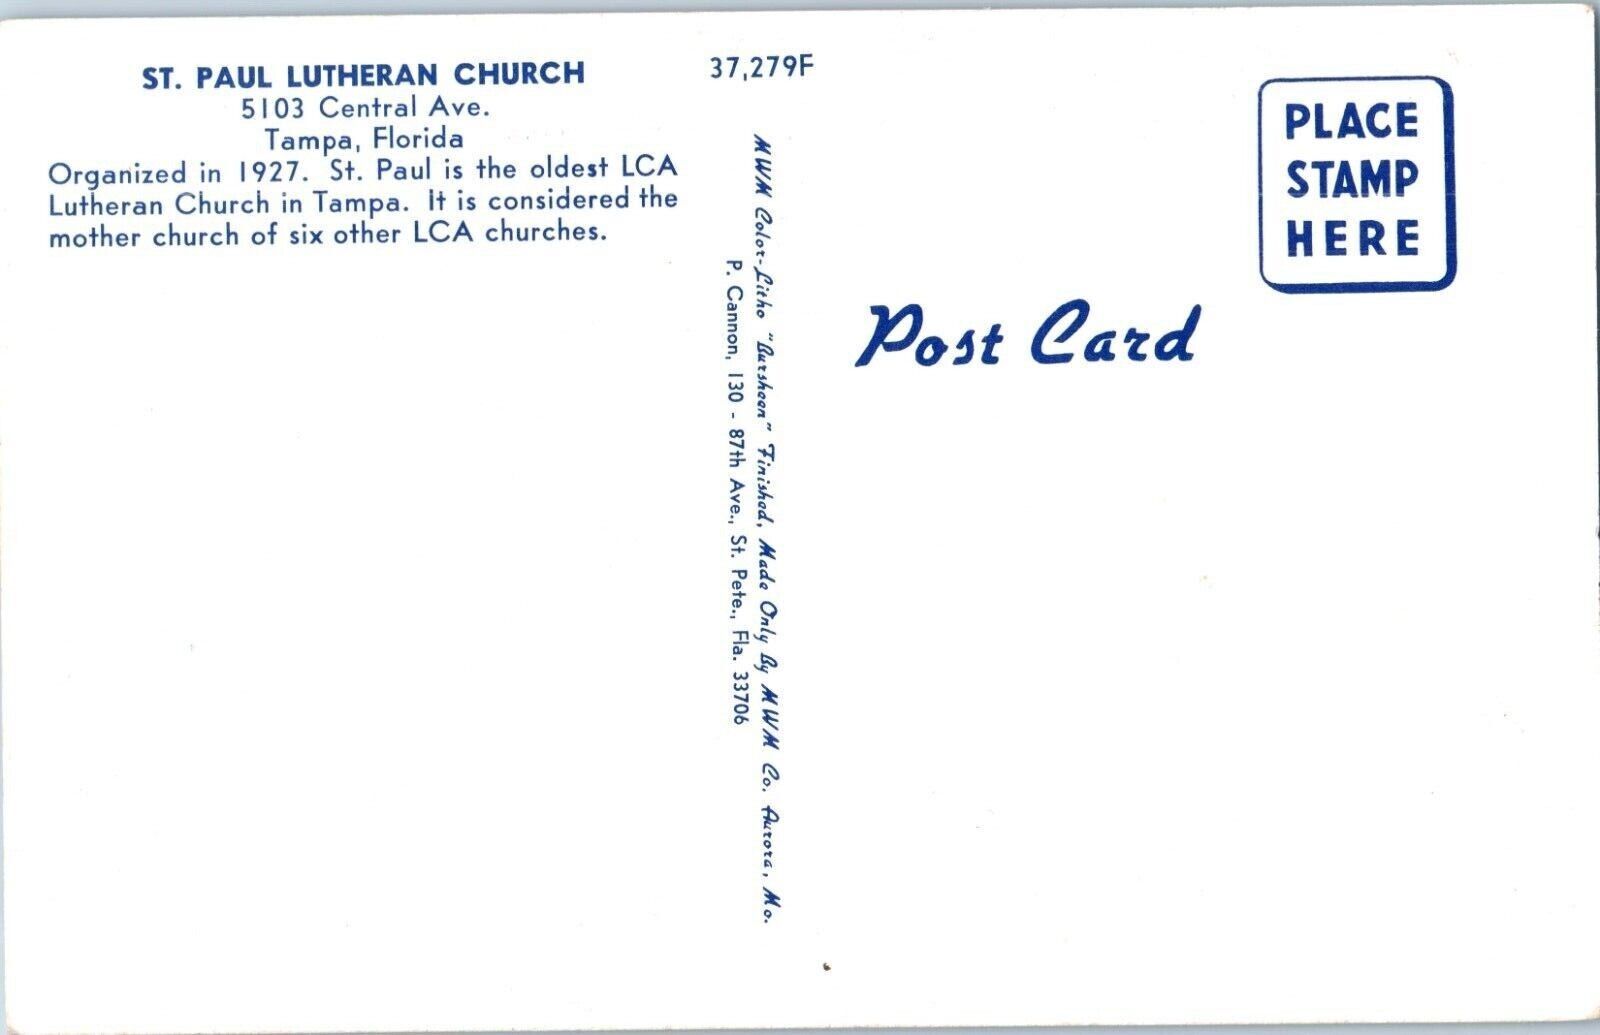 ST. PAUL LUTHERAN CHURCH
5103 Central Ave.
Tampa, Florida
Organized in 1927. St. Paul is the oldest LCA
Lutheran Church in Tampa. It is considered the
mother church of six other LCA churches.
37,279F
MWM Color-Litho "Bursheen" Finished, Made Only By MWM Co. Aurora, Mo.
P. Cannon, 130 - 87th Ave., St. Pete., Fla. 33706
PLACE
STAMP
HERE
Post Card